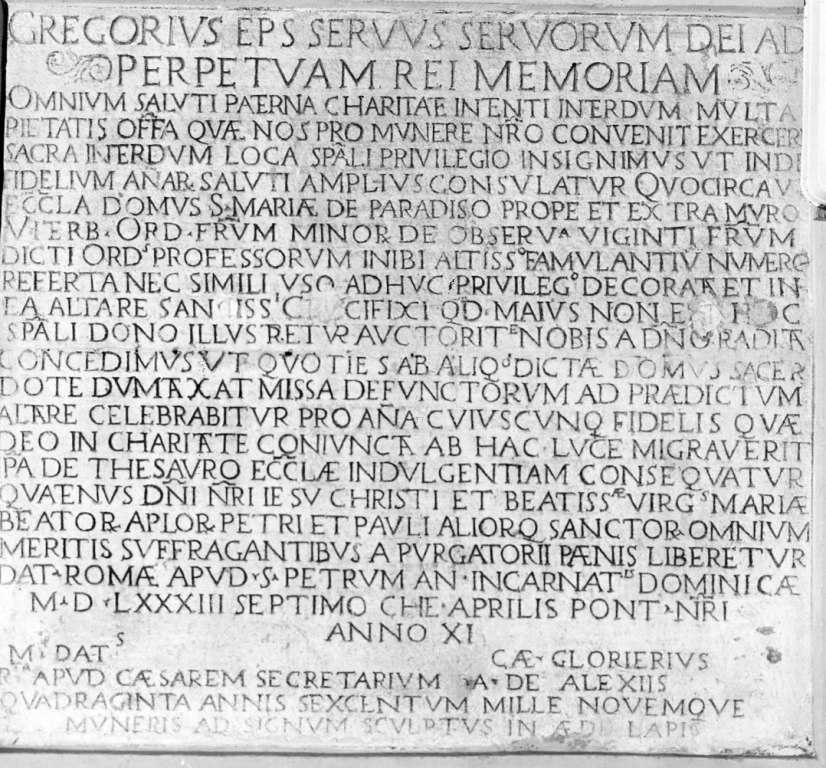 GREGORIVS EPS SERVVS SERVORVM DEI AD
PERPETVAM REI MEMORIAM
OMNIVM SALVTI PATERNA CHARITATE INTENTI INTERDVM MVLTA
PIETATIS OFFA QVÆ NOS PRO MVNERE NRO CONVENIT EXERCER
SACRA INTERDVM LOCA SPALI PRIVILEGIO INSIGNIMVS VT INDE
FIDELIVM AÑAR SALVTI AMPLIVS CONSVLATVR QVOCIRCA VT
ECCLA DOMVS S MARIÆ DE PARADISO PROPE ET EXTRA MVRO
VITERB ORD FRVM MINOR DE OBSERVA VIGINTI FRVM
DICTI ORDS PROFESSORVM INIBI ALTISSO FAMVLANTIV NVMERO
REFERTA NEC SIMILI VSQ ADHVC PRIVILEGO DECORATA ET IN
EA ALTARE SANCTISSI CIFIXI QD MAIVS NON HOC
SPALI DONO ILLVSTRETVR AVCTORITE NOBIS A DÑO TRADITA
CONCEDIMVS VT QVOTIES AB ALIQO DICTÆ DOMVS SACER
DOTE DVMTAXAT MISSA DEFVNCTORVM AD PRÆDICTVM
ALTARE CELEBRABITVR PRO AÑA CVIVSCVNQ FIDELIS QVÆ
DEO IN CHARITATE CONIVNCTA AB HAC LVCE MIGRAVERIT
IPA DE THESAVRO ECCLÆ INDVLGENTIAM CONSEQVATVR
QVATENVS DÑI ÑRI IESV CHRISTI ET BEATISSÆ VIRGS MARIÆ
BEATOR APLOR PETRI ET PAVLI ALIORQ SANCTOR OMNIVM
MERITIS SVFFRAGANTIBVS A PVRGATORII PÆNIS LIBERETVR
DAT ROMÆ APVD S PETRVM AN INCARNATIS DOMINICÆ
M D LXXXIII SEPTIMO CHE APRILIS PONT ÑRI
ANNO XI
M DATS CÆ GLORIERIVS
RTA APVD CÆSAREM SECRETARIVM A DE ALEXIIS
QVADRAGINTA ANNIS SEXCENTVM MILLE NOVEMQVE
MVNERIS AD SIGNVM SCVLPTVS IN ÆDE LAPIS